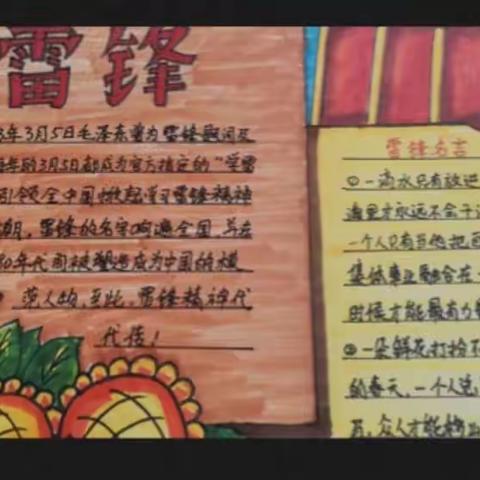 雷锋
3年3月5日毛泽东曾为雷锋题词及
年的3月5日都成为官方指定的“学雷
引领全中国掀起学习雷锋精神
潮，雷锋的名字响遍全国，并在
60年代间被塑造成为中国的模
范人物，至此，雷锋精神代
代传！
雷锋名言
①一滴水只有放进
海里才永远不会干
一个人只有当他把
集体事业融合在一
时候才能最有力
②一朵鲜花打扮不
的春天，一个人
众人才能